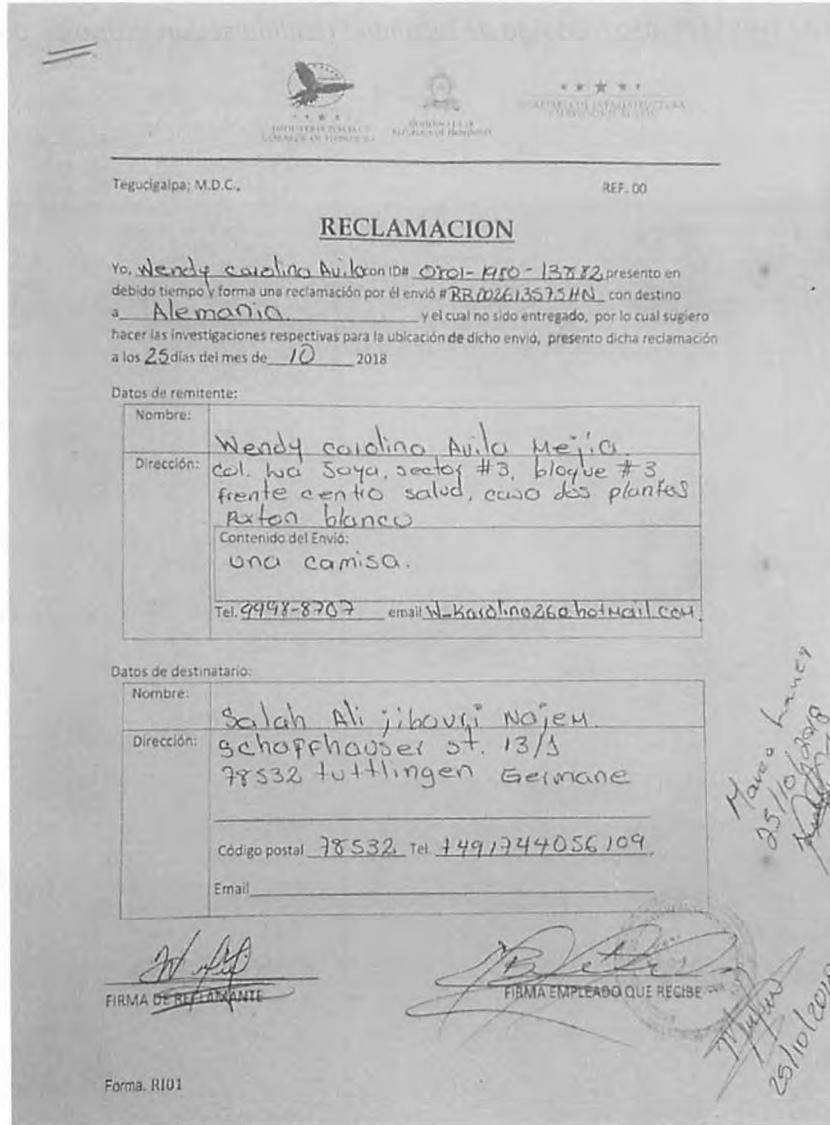 Tegucigalpa; M.D.C.,
REF. 00
RECLAMACION
Yo, Wendy carolina Avila con ID# 0801-1980-13882 presento en
debido tiempo y forma una reclamación por él envió # RR002613575HN con destino
a Alemania y el cual no sido entregado, por lo cual sugiero
hacer las investigaciones respectivas para la ubicación de dicho envío, presento dicha reclamación
a los 25 días del mes de 10 2018
Datos de remitente:
Nombre:
Wendy carolina Avila Mejia.
Dirección:
Col. La Joya, sector #3, bloque #3
frente centro salud, casa dos plantas
Porton blanco
Contenido del Envió:
una camisa.
Tel. 9998-8707 email W_Karolina26@hotmail.com
Datos de destinatario:
Nombre:
Salah Ali jibouri Najem.
Dirección:
schaffhauser st. 13/1
78532 tuttlingen Germane
Código postal 78532 Tel. +491744056109
Email
Marco
25/10/2018
FIRMA DE RECLAMANTE
FIRMA EMPLEADO QUE RECIBE
25/10/2018
Forma. RI01